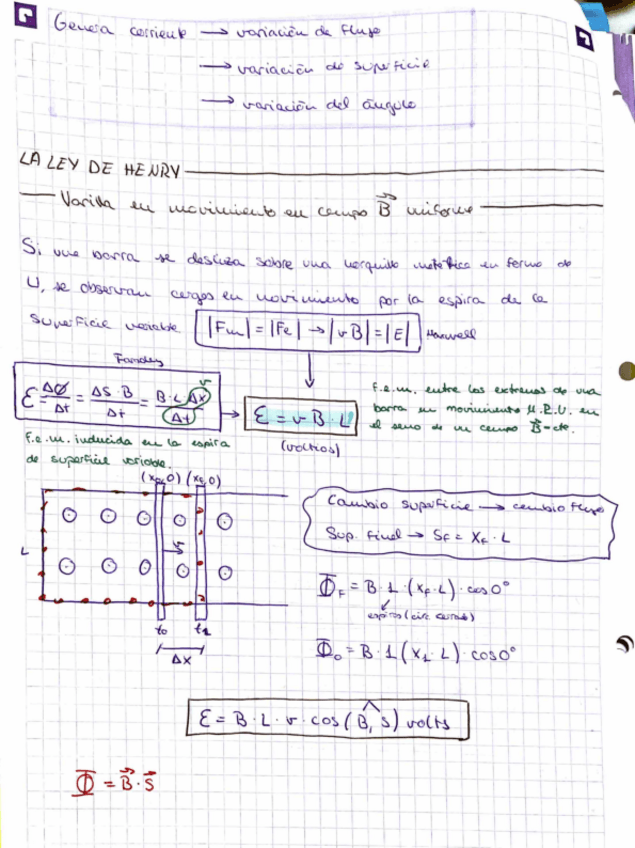 Genera corriente → variación de flujo
→ variación de superficie
→ variación del ángulo
LA LEY DE HENRY
Varilla en movimiento en campo B⃗ uniforme
Si una barra se desliza sobre una horquilla metálica en forma de
U, se observan cargas en movimiento por la espira de la
superficie variable |Fm| = |Fe| → |v B| = |E| Maxwell
Faraday
ε = ΔΦ/Δt = ΔS · B/Δt = B · L Δx/Δt v → ε = v · B · L
(voltios)
f.e.m. entre los extremos de una
barra en movimiento M.R.U. en
el seno de un campo B⃗ = cte.
f.e.m. inducida en la espira
de superficie variable.
(x₀,0) (x₁,0)
L
v
t₀ t₁
Δx
Cambio superficie → cambio flujo
Sup. final → S_F = X_F · L
Φ_F = B · 1 · (X_F · L) · cos 0°
espiras (circ cerrado)
Φ₀ = B · 1 (X₁ · L) · cos 0°
ε = B · L · v · cos (B, S) volts
Φ = B⃗ · S⃗